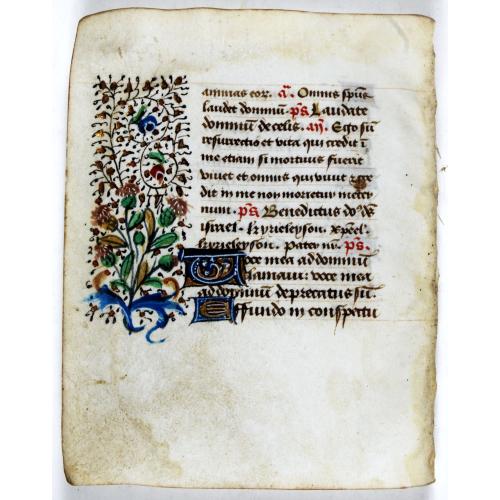 animas eor. a. Omnis spūs
laudet dominū. ps Laudate
dominū de celis. an. Ego sū
resurrectio et vita qui credit ī
me etiam si mortuus fuerit
vivet et omnis qui vivit et cre
dit in me non morietur in eter
num. ps Benedictus do. d̄s
israel. kyrieleyson. xp̄el.
kyrieleyson. Pater nr̄. ps.
Voce mea ad dominū
clamavi: voce mea
ad dominū deprecatus sū.
Effundo in conspectu